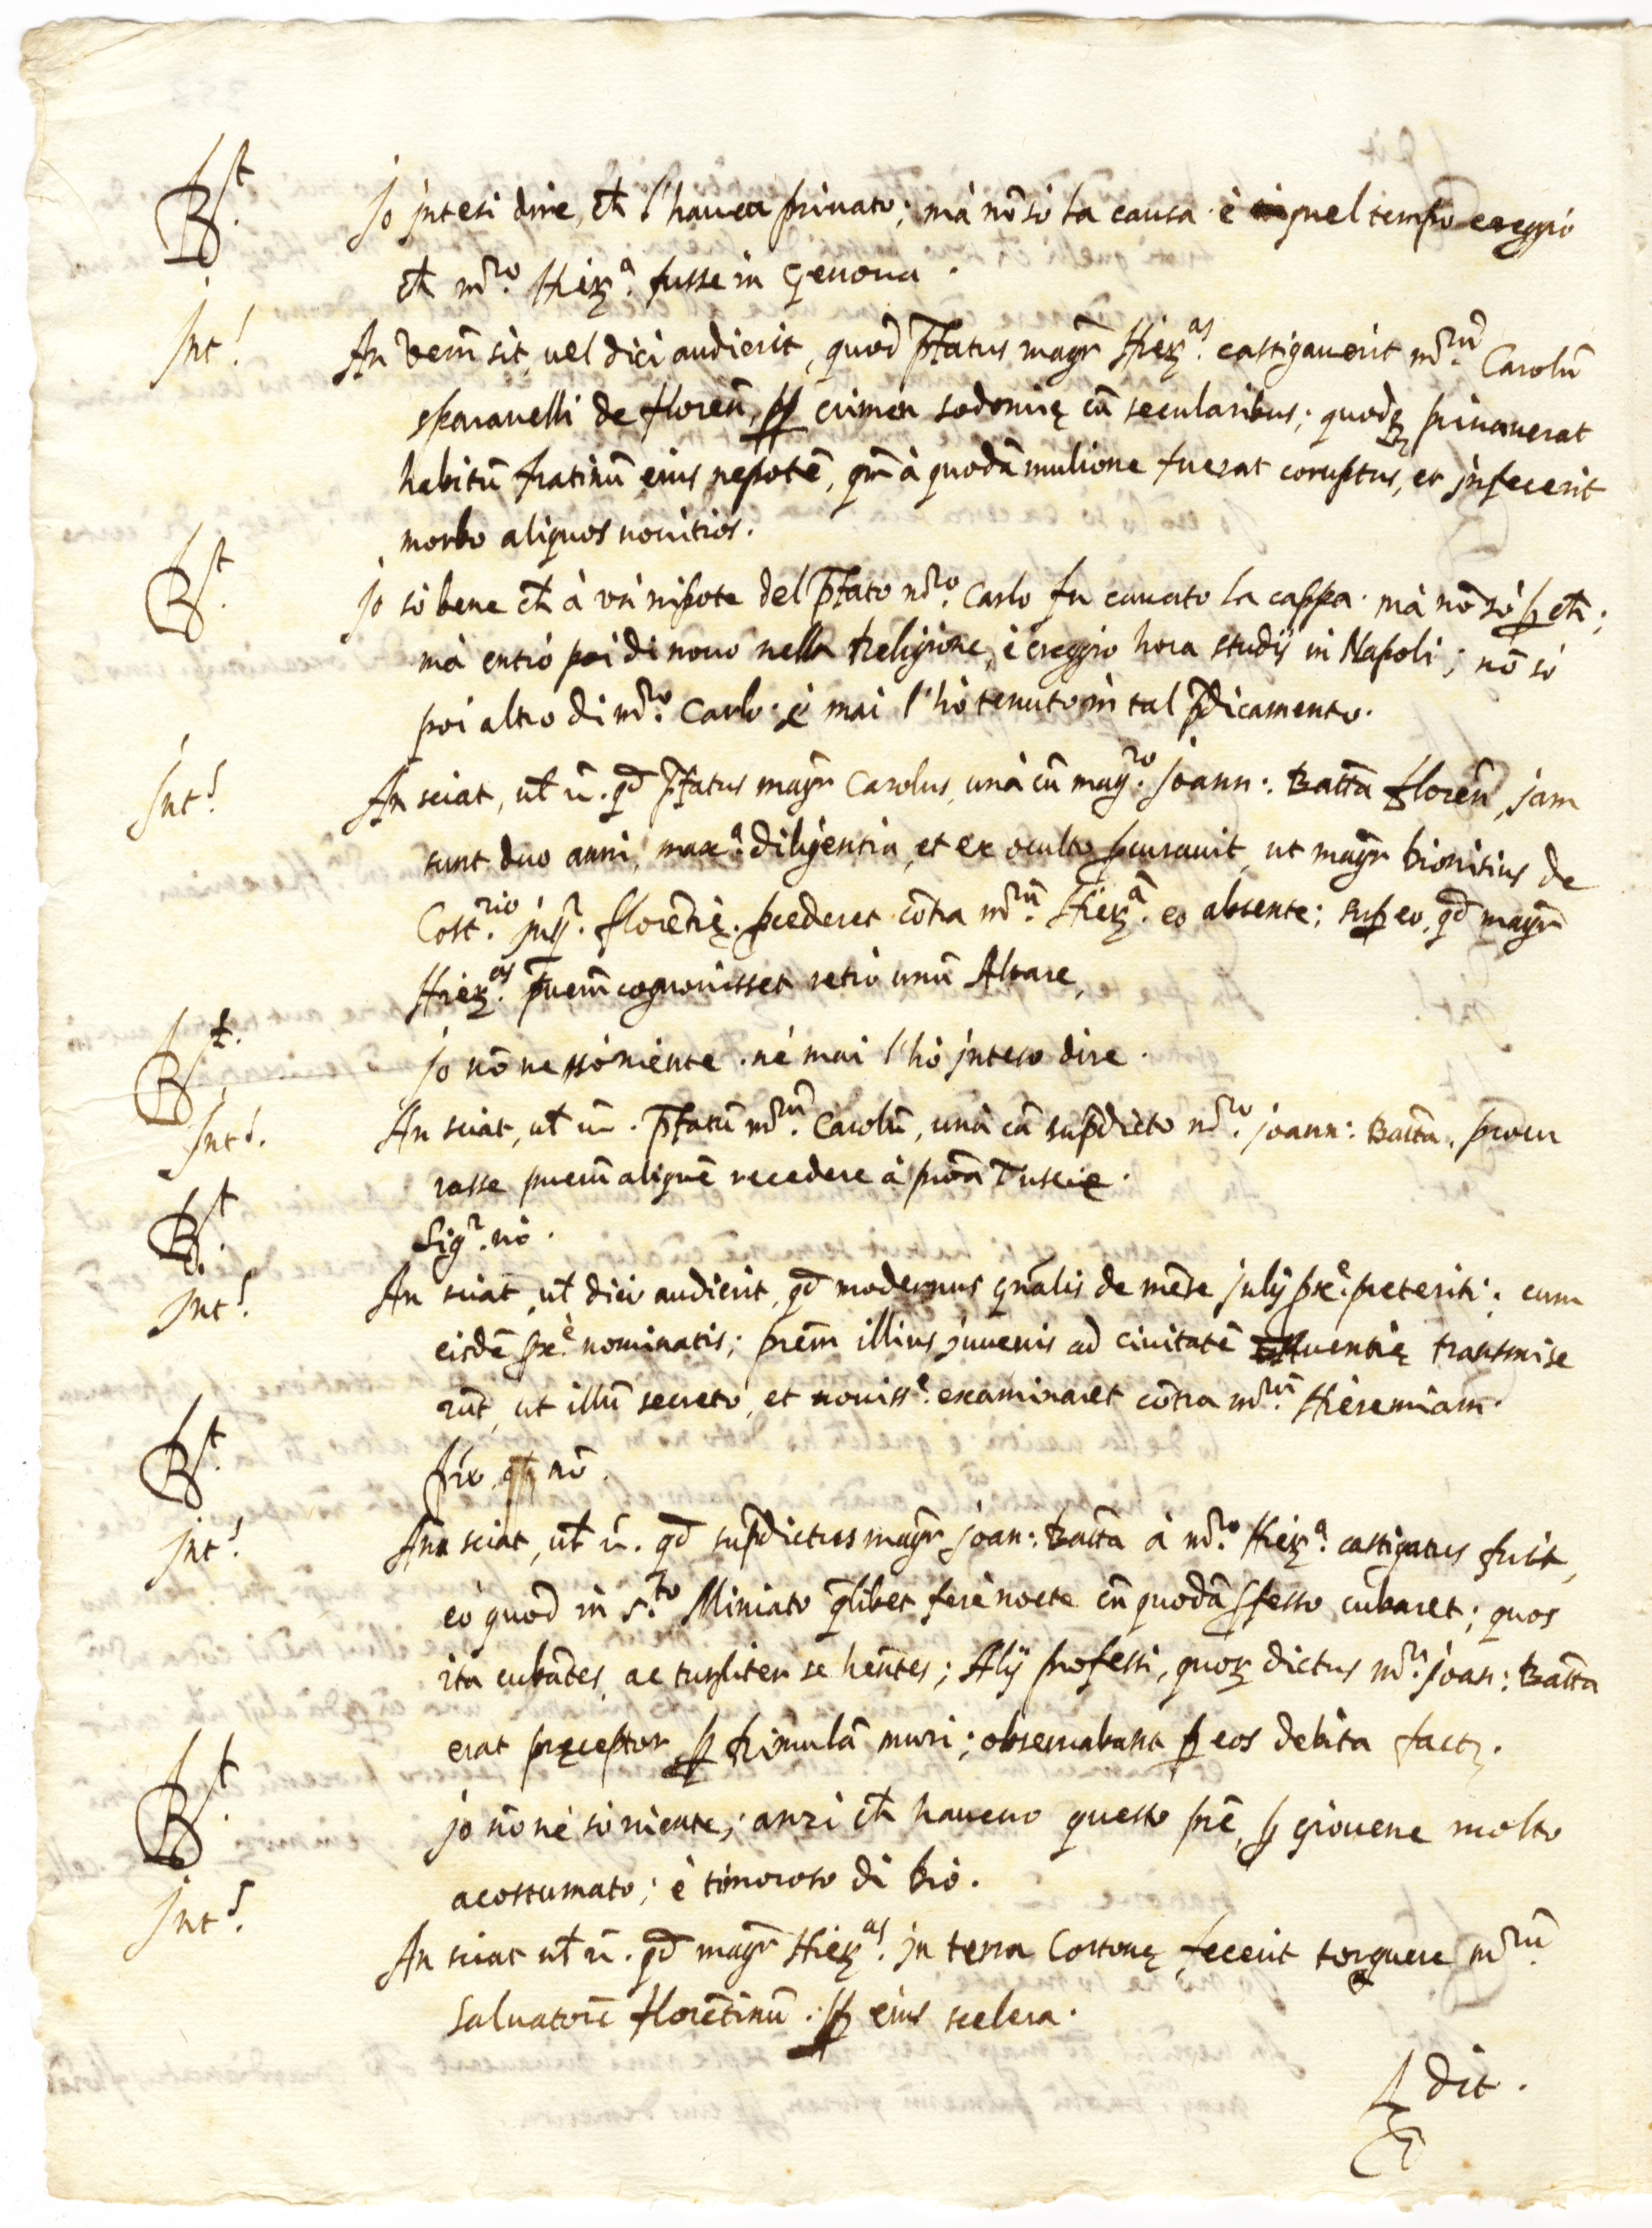 Rt. Jo jntesi dire, ch̃ l'havea privato; mà nõ sò la causa. è quel tempo creggio
ch̃ m.ro Hier.a fusse in Genova.
Int.s An verũ sit, vel dici audierit, quod p̃fatus mag.r Hier.as castigaverit m.rũ Carolũ
sparavelli de florẽ, ꝓp crimen sodomię cũ secularibus; quodq privaverat
habitũ fratinũ eius nepotẽ, qm̃ à quodã mulione fuerat coruptus, et jnfecerit
morbo aliquos novitios.
Rt. Jo sò bene ch̃ à vn nipote del p̃fato m.ro Carlo fu cavato la cappa. mà nõ sò ꝑ ch̃;
mà entrò poi di novo nella Religione, è creggio hora studij in Napoli; nõ sò
poi altro di m.ro Carlo. è mai l'hò tenuto in tal p̃dicamento.
Int.s An sciat, ut̃ ũ. qd̃ p̃fatus mag̃r Carolus, unà cũ mag.ro Joann: Batt̃a florẽn, jam
sunt duo anni, max.a diligentia, et ex oculto ꝓcuravit, ut mag̃r Dionisius de
Cost.rio jnq.r florẽtię. ꝓcederet cõtra m.rũ Hier.ã eo absente; sup eo, qd̃ mag̃r
Hier.as puerũ cognovisset retrò unũ Altare,
Rt. Jo nõ ne sò niente. nè mai l'hò jnteso dire.
Int.s An sciat, ut̃ ũ. p̃fatũ m.rũ Carolũ, unà cũ sup̃dicto m.ro Joann: Batt̃a. procu
rasse puerũ aliquẽ recedere à proṽa Tuscię.
Rt. Sig.r nò.
Int.s An sciat, ut̃ dici audierit, qd̃ modernus gñalis de mẽse julij px.e preteriti; cum
eisdẽ px.è nominatis; p̃rem illius juvenis ad civitatẽ transmise
rũt, ut illũ secreto, et noviss.e examinaret cõtra m.rũ Hieremiam.
Rt. nõ.
Int.s An sciat, ut̃ ũ. qd̃ sup̃dictus mag̃r Joan: Batt̃a à m.ro Hier.a castigatus fuit,
eò quod in s.to Miniato q̃libet ferè nocte cũ quodã ꝓfesso cubaret; quos
ita cubãtes, ac turpiter se hẽntes; Alij professi, quor dictus m.r Joan: Batt̃a
erat pręceptor ꝑ rimulã muri; observabant ꝑ eos debita fact.
Rt. jo nõ nè sò niente; anzi ch̃ havevo questo pr̃e, ꝑ giovene molto
acostumato; è timoroso di Dio.
Int.s An sciat ut̃ ũ. qd̃ mag̃r Hier.as jn terra Cortonę fecerit torquere m.rũ
Salvatorẽ florẽtinũ. ꝓp eius scelera.
dit.